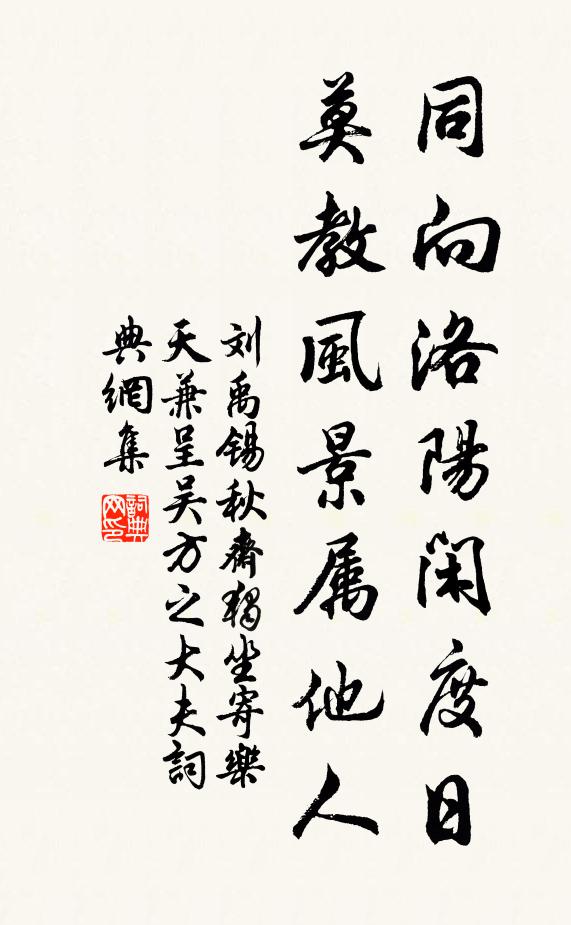 同向洛陽閑度日
莫教風景属他人
刘禹锡秋齋獨坐寄樂
天兼呈吴方之大夫詞
典網集
詞典网印